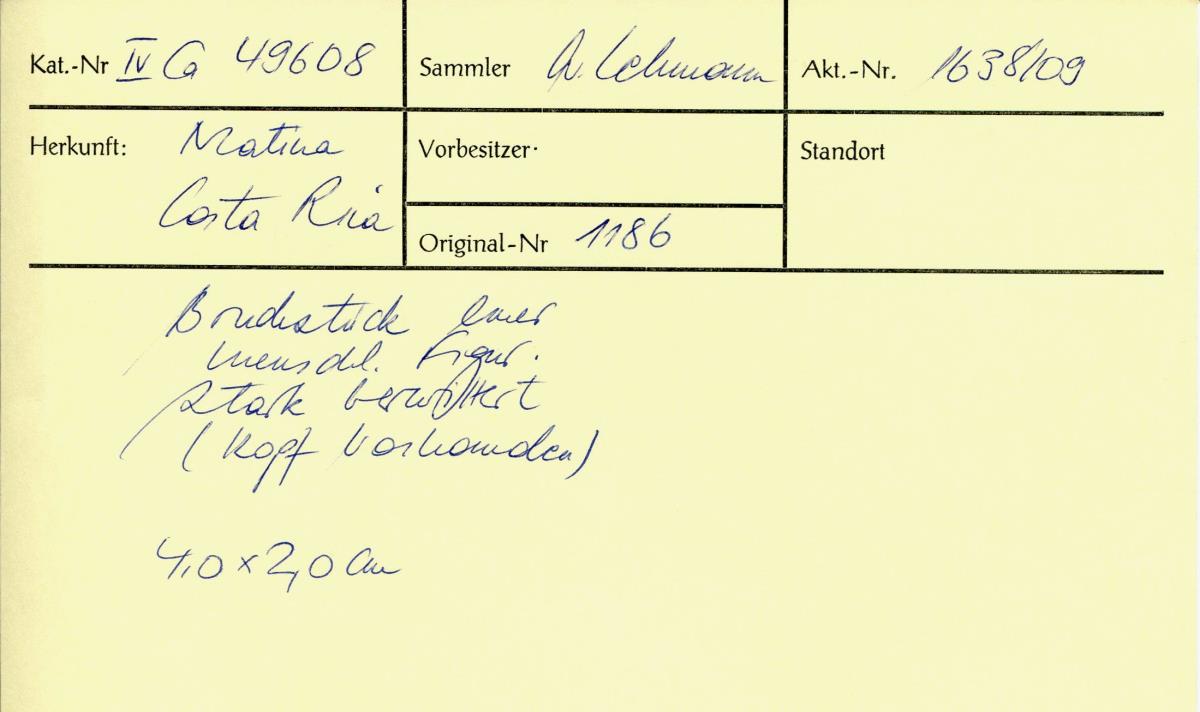 Kat.-Nr IV Ca 49608
Sammler W. Lehmann
Akt.-Nr. 1638/09
Herkunft: Matina
Costa Rica
Vorbesitzer:
Original-Nr 1186
Standort
Bruchstück einer
menschl. Figur.
stark verwittert
(Kopf vorhanden)
4,0 x 2,0 cm